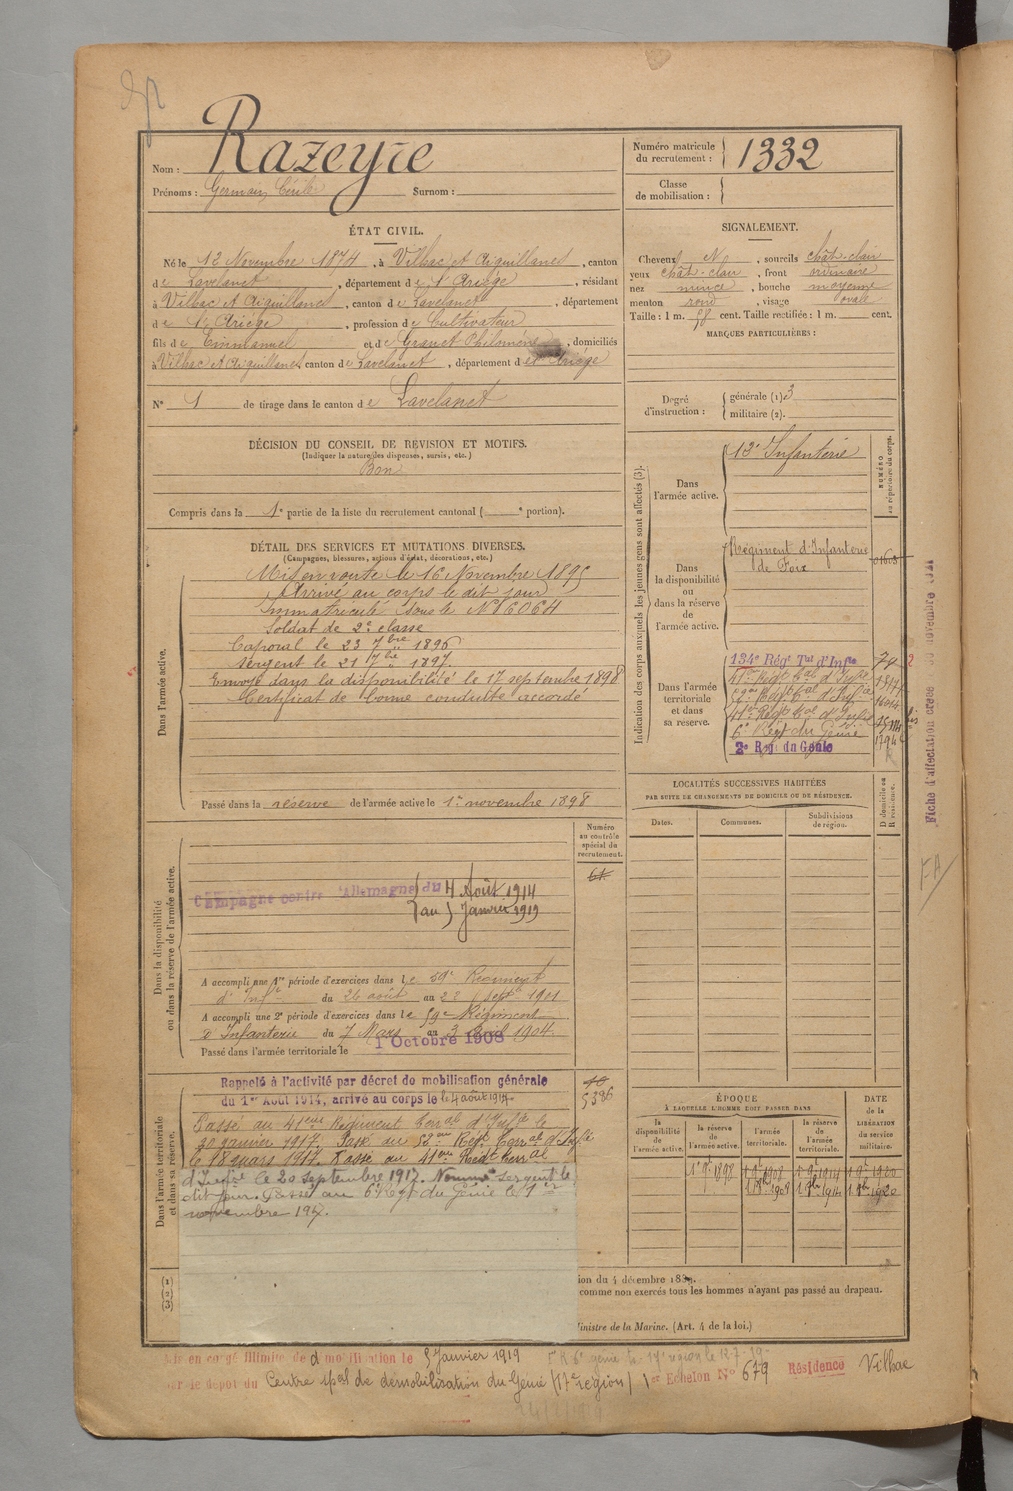 Nom : Razeyre
Prénoms : Germain Cécile Surnom :
Numéro matricule du recrutement : 1332
Classe de mobilisation :
ÉTAT CIVIL.
Né le 12 Novembre 1874, à Vilhac et Aiguillanes, canton
de Lavelanet, département de l'Ariége, résidant
à Vilhac et Aiguillanes, canton de Lavelanet, département
de l'Ariége, profession de Cultivateur
fils de Emmanuel et de Granet Philomène, domiciliés
à Vilhac et Aiguillanes, canton de Lavelanet, département de Ariége
N° 1 de tirage dans le canton de Lavelanet
SIGNALEMENT.
Cheveux N, sourcils chât-clair
yeux chât-clair, front ordinaire
nez mince, bouche moyenne
menton rond, visage ovale
Taille : 1 m. 58 cent. Taille rectifiée : 1 m. cent.
MARQUES PARTICULIÈRES :
Degré d'instruction : générale (1) 3
militaire (2).
DÉCISION DU CONSEIL DE RÉVISION ET MOTIFS.
(Indiquer la nature des dispenses, sursis, etc.)
Bon
Compris dans la 1e partie de la liste du recrutement cantonal ( e portion).
DÉTAIL DES SERVICES ET MUTATIONS DIVERSES.
(Campagnes, blessures, actions d'éclat, décorations, etc.)
Dans l'armée active.
Mis en route le 16 Novembre 1895
Arrivé au corps le dit jour
Immatriculé sous le N° 6064
Soldat de 2e classe
Caporal le 23 7bre 1896
Sergent le 21 7bre 1897.
Envoyé dans la disponibilité le 17 septembre 1898
Certificat de bonne conduite accordé
Passé dans la réserve de l'armée active le 1er novembre 1898
Indication des corps auxquels les jeunes gens sont affectés (3).
NUMÉRO au répertoire du corps.
Dans l'armée active.
13e Infanterie
Dans la disponibilité ou dans la réserve de l'armée active.
Régiment d'Infanterie
de Foix
Dans l'armée territoriale et dans sa réserve.
134e Régt Tal d'Infie
6e Régt du Génie
2e Régt du Génie
Fiche d'affectation créée 30 novembre
FA
LOCALITÉS SUCCESSIVES HABITÉES
PAR SUITE DE CHANGEMENTS DE DOMICILE OU DE RÉSIDENCE.
D domicile ou R résidence.
Dates. Communes. Subdivisions de région.
Dans la disponibilité ou dans la réserve de l'armée active.
Numéro au contrôle spécial du recrutement.
61
Campagne contre l'Allemagne du 4 Août 1914
au 5 Janvier 1919
A accompli une 1re période d'exercices dans le 59e Régiment
d'Infie du 26 août au 22 septe 1901
A accompli une 2e période d'exercices dans le 59e Régiment
d'Infanterie du 7 Mars au 3 Avril 1904.
Passé dans l'armée territoriale le 1 Octobre 1908
Dans l'armée territoriale et dans sa réserve.
Rappelé à l'activité par décret de mobilisation générale
du 1er Août 1914, arrivé au corps le le 4 août 1914.
5386
Passé au 41ème Régiment Terral d'Infie le
20 janvier 1917. Passé au 52ème Régt Terral d'Infie
le 18 mars 1917. Passé au 41ème Régt Terral
d'Infie le 20 septembre 1917. Nommé Sergent le
dit jour. Passé au 6e Régt du Génie le 1er
novembre 197.
ÉPOQUE
À LAQUELLE L'HOMME DOIT PASSER DANS
DATE de la LIBÉRATION du service militaire.
la disponibilité de l'armée active. la réserve de l'armée active. l'armée territoriale. la réserve de l'armée territoriale.
1er 9bre 1898 1 9bre 1908 1 9bre 1914 1 9bre 1920
1 8bre 1908 1 8bre 1914 1 8bre 1920
(1)
(2)
(3)
ion du 4 décembre 1889.
comme non exercés tous les hommes n'ayant pas passé au drapeau.
Ministre de la Marine. (Art. 4 de la loi.)
Mis en congé illimité de démobilisation le 5 Janvier 1919
par le dépôt du Centre 1pal de démobilisation du Génie (17e région) 1er Echelon N° 679 Résidence Vilhac